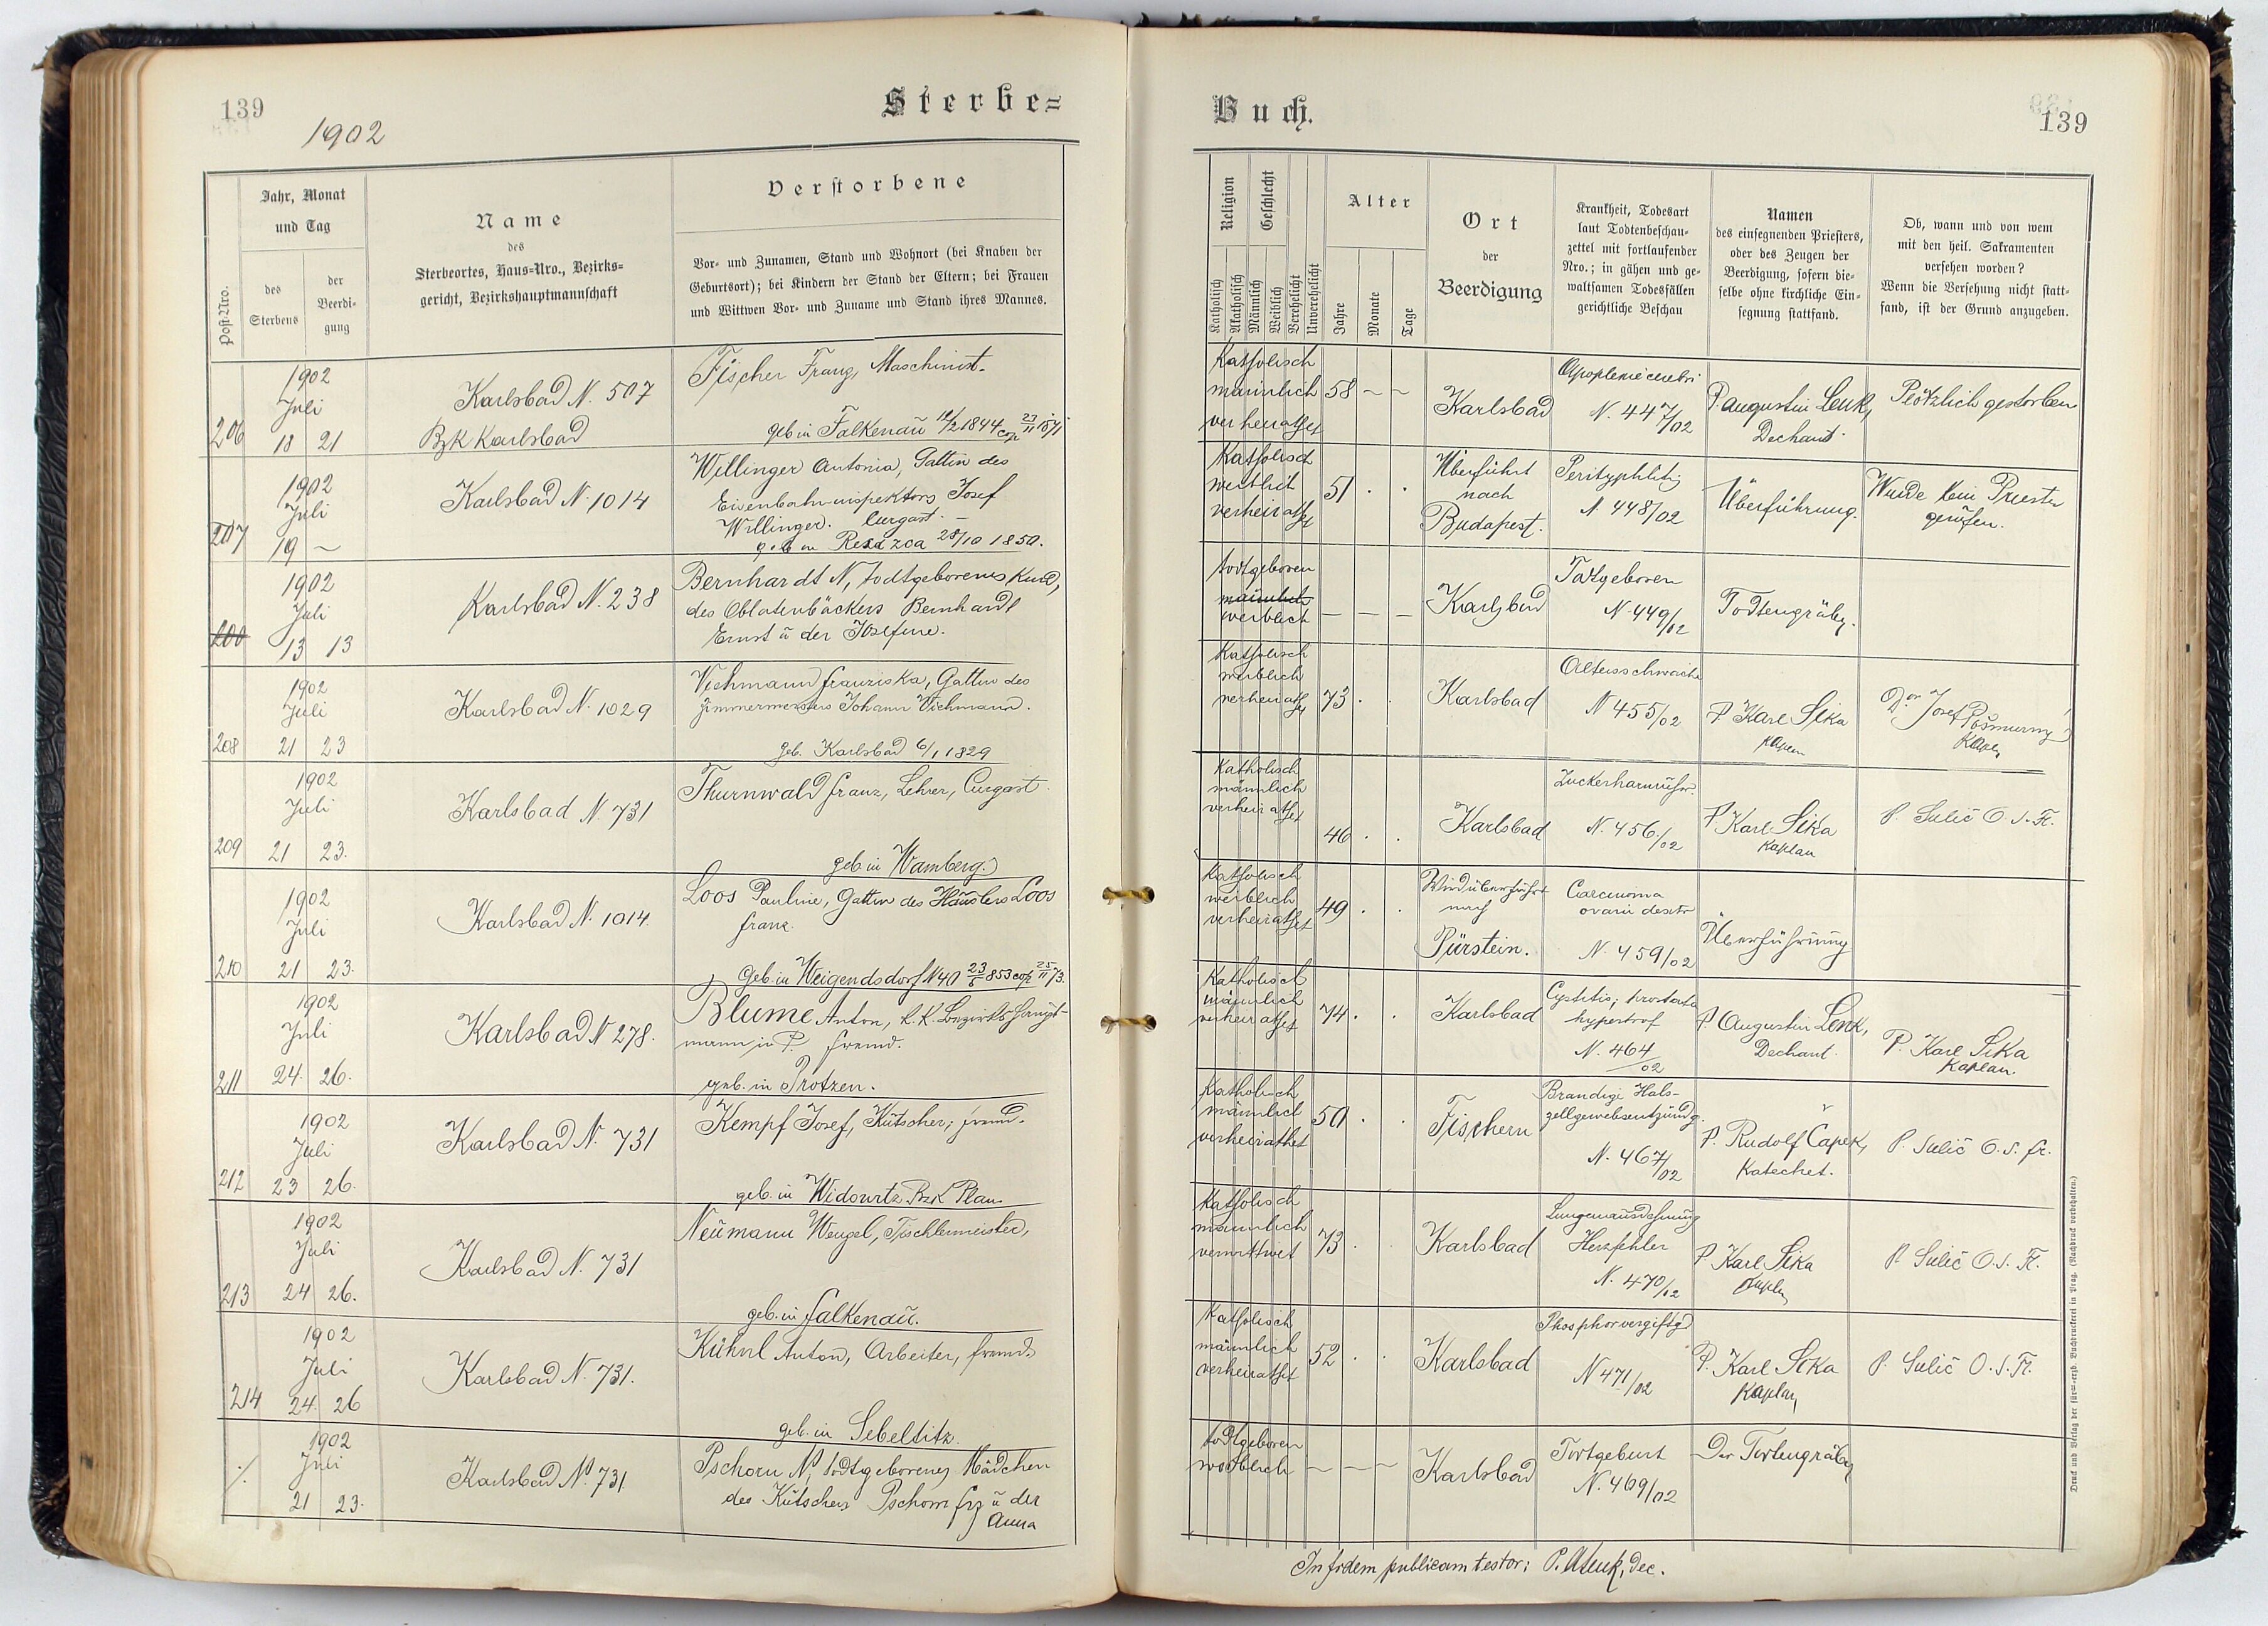 139
1902
Sterbe=
Post-Nro.
Jahr, Monat
und Tag
des
Sterbens
der
Beerdi-
gung
Name
des
Sterbeortes, Haus=Nro., Bezirks=
gericht, Bezirkshauptmannschaft
Verstorbene
Vor- und Zunamen, Stand und Wohnort (bei Knaben der
Geburtsort); bei Kindern der Stand der Eltern; bei Frauen
und Wittwen Vor- und Zuname und Stand ihres Mannes.
1902
Juli
206 18 21
Karlsbad N. 507
BzK Karlsbad
Fischer Franz, Maschinist.
geb in Falkenau 1844 cop
1902
Juli
207 19 —
Karlsbad N. 1014
Willinger Antonia, Gattin des
Eisenbahninspektors Josef
Willinger. Curgast.
geb in Reszcza 28/10 1850.
1902
Juli
13 13
Karlsbad N. 238
Bernhardt N, todtgeborenes Kind,
des Oblatenbäckers Bernhardt
Ernst u der Josefine.
1902
Juli
208 21 23
Karlsbad N. 1029
Viehmann Franziska, Gattin des
Zimmermeisters Johann Viehmann.
geb. Karlsbad 6/1 1829
1902
Juli
209 21 23.
Karlsbad N. 731
Thurnwald Franz, Lehrer, Curgast.
geb in Wamberg.
1902
Juli
210 21 23.
Karlsbad N. 1014.
Loos Pauline, Gattin des Häuslers Loos
Franz.
Geb. in Weigendsdorf N 40 23/5 853 cop 25/11 73.
1902
Juli
211 24. 26.
Karlsbad N 278.
Blume Anton, k. k. Bezirkshaupt-
mann in P. fremd.
geb. in Protzen.
1902
Juli
212 23 26.
Karlsbad N. 731
Kempf Josef, Kutscher, fremd.
geb. in Widowitz BzK Plan.
1902
Juli
213 24 26.
Karlsbad N. 731
Neumann Wenzel, Tischlermeister,
geb. in Falkenau.
1902
Juli
214 24. 26
Karlsbad N. 731.
Kühnl Anton, Arbeiter, fremd.
geb. in Sebeltitz.
1902
Juli
·/· 21 23.
Karlsbad No. 731
Pschorn N, todtgeborenes Mädchen
des Kutschers Pschorn Frz u der
Anna
Buch.
139
Religion
Katholisch
Akatholisch
Geschlecht
Männlich
Weiblich
Verehelicht
Unverehelicht
Alter
Jahre
Monate
Tage
Ort
der
Beerdigung
Krankheit, Todesart
laut Todtenbeschau-
zettel mit fortlaufender
Nro.; in gähen und ge-
waltsamen Todesfällen
gerichtliche Beschau
Namen
des einsegnenden Priesters,
oder des Zeugen der
Beerdigung, sofern die-
selbe ohne kirchliche Ein-
segnung stattfand.
Ob, wann und von wem
mit den heil. Sakramenten
versehen worden?
Wenn die Versehung nicht statt-
fand, ist der Grund anzugeben.
Katholisch
männlich
verheirathet
58 – –
Karlsbad
Apoplexie cerebri
N. 447/02
P. Augustin Lenk,
Dechant.
Plötzlich gestorben
Katholisch
weiblich
verheirathet
51 . .
Überführt
nach
Budapest.
Perityphlitis
N. 448/02
Überführung.
Wurde kein Priester
gerufen.
todtgeboren
männlich
weiblich
— — —
Karlsbad
Todtgeboren
N. 449/02
Todtengräber.
Katholisch
weiblich
verheirathet
73 . .
Karlsbad
Altersschwäche
N 455/02
P Karl Sika
Kaplan
Dor Josef Pošmurný
Kapl.
Katholisch
männlich
verheirathet
46 . .
Karlsbad
Zuckerharnruhr.
N. 456./02
P. Karl Sika
Kaplan
P. Sulič O. S. Fr.
Katholisch
weiblich
verheirathet
49 . .
Wird überführt
nach
Pürstein.
Carcinoma
ovarii dextr
N. 459/02
Überführung
Katholisch
männlich
verheirathet
74. .
Karlsbad
Cystitis, prostata
hypertrof
N. 464/02
P. Augustin Lenk,
Dechant.
P. Karl Sika
Kaplan.
Katholisch
männlich
verheirathet
50 . .
Fischern
Brandige Hals-
zellgewebsentzündg.
N. 467/02
P. Rudolf Čapek,
Katechet.
P. Sulič O. S. Fr.
Katholisch
männlich
verwittwet
73 . .
Karlsbad
Lungenausdehnung
Herzfehler
N. 470/02
P Karl Sika
Kaplan
P. Sulič O. S. Fr.
Katholisch
männlich
verheirathet
52 . .
Karlsbad
Phosphorvergiftg
N 471/02
P. Karl Sika
Kaplan
P. Sulič O. S. Fr.
todtgeboren
weiblich
— — —
Karlsbad
Todtgeburt
N. 469/02
Der Todtengräber
In fidem publicam testor: P. ALenk, Dec.
Druck und Verlag der fürst-erzb. Buchdruckerei in Prag. (Nachdruck vorbehalten.)